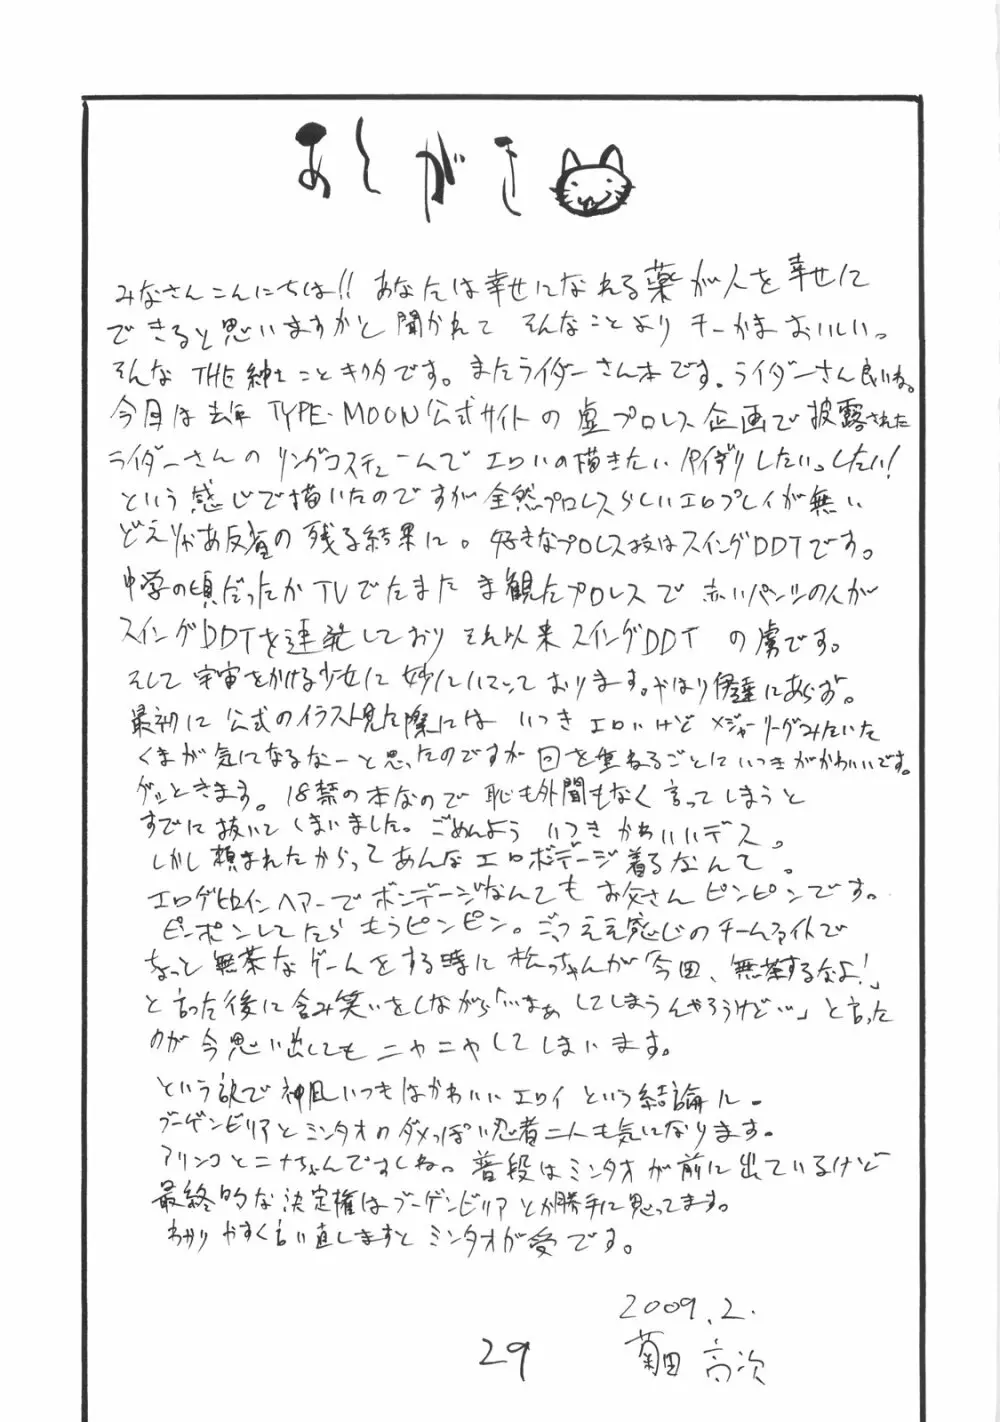 あとがき
みなさんこんにちは!! あなたは幸せになれる薬が人を幸せに
できると思いますかと聞かれて そんなことよりチーかまおいしいっ
そんな THE紳士ことキクタです。またライダーさん本です。ライダーさん良いね。
今回は去年 TYPE-MOON公式サイトの虚プロレス企画で披露された
ライダーさんのリングコスチュームでエロいの描きたい パイズリしたい。したい!
という感じで描いたのですが全然プロレスらしいエロプレイが無い
どえりゃあ反省の残る結果に。好きなプロレス技はスイングDDTです。
中学の頃だったかTVでたまたま観たプロレスで赤いパンツの人が
スイングDDTを連発しており それ以来スイングDDTの虜です。
そして宇宙をかける少女に妙にハマっております。やはり伊達にあらず。
最初に公式のイラスト見た際には いつきエロいけどメジャーリーグみたいた
くまが気になるなーと思ったのですが回を重ねるごとにいつきがかわいいです。
グッときます。18禁の本なので恥も外聞もなく言ってしまうと
すでに抜いてしまいました。ごめんよう いつきかわいいデス。
しかし頼まれたからってあんなエロボンデージ着るなんて。
エロゲヒロインヘアーでボンデージなんてもうお父さんピンピンです。
ピンポンしてたらもうピンピン。ごっつええ感じのチームファイトで
ちょっと無茶なゲームをする時に松っちゃんが「今回、無茶するなよ!」
と言った後に含み笑いをしながら「いまぁ してしまうんやろうけど…」と言った
のが今思い出してもニヤニヤしてしまいます。
という訳で神凪いつきはかわいいエロイという結論に。
ブーゲンビリアとミンタオのダメっぽい忍者二人も気になります。
アリンコとニナちゃんですしね。普段はミンタオが前に出ているけど
最終的な決定権はブーゲンビリアとか勝手に思ってます。
わかりやすく言い直しますとミンタオが受です。
2009.2.
菊田 高次
29